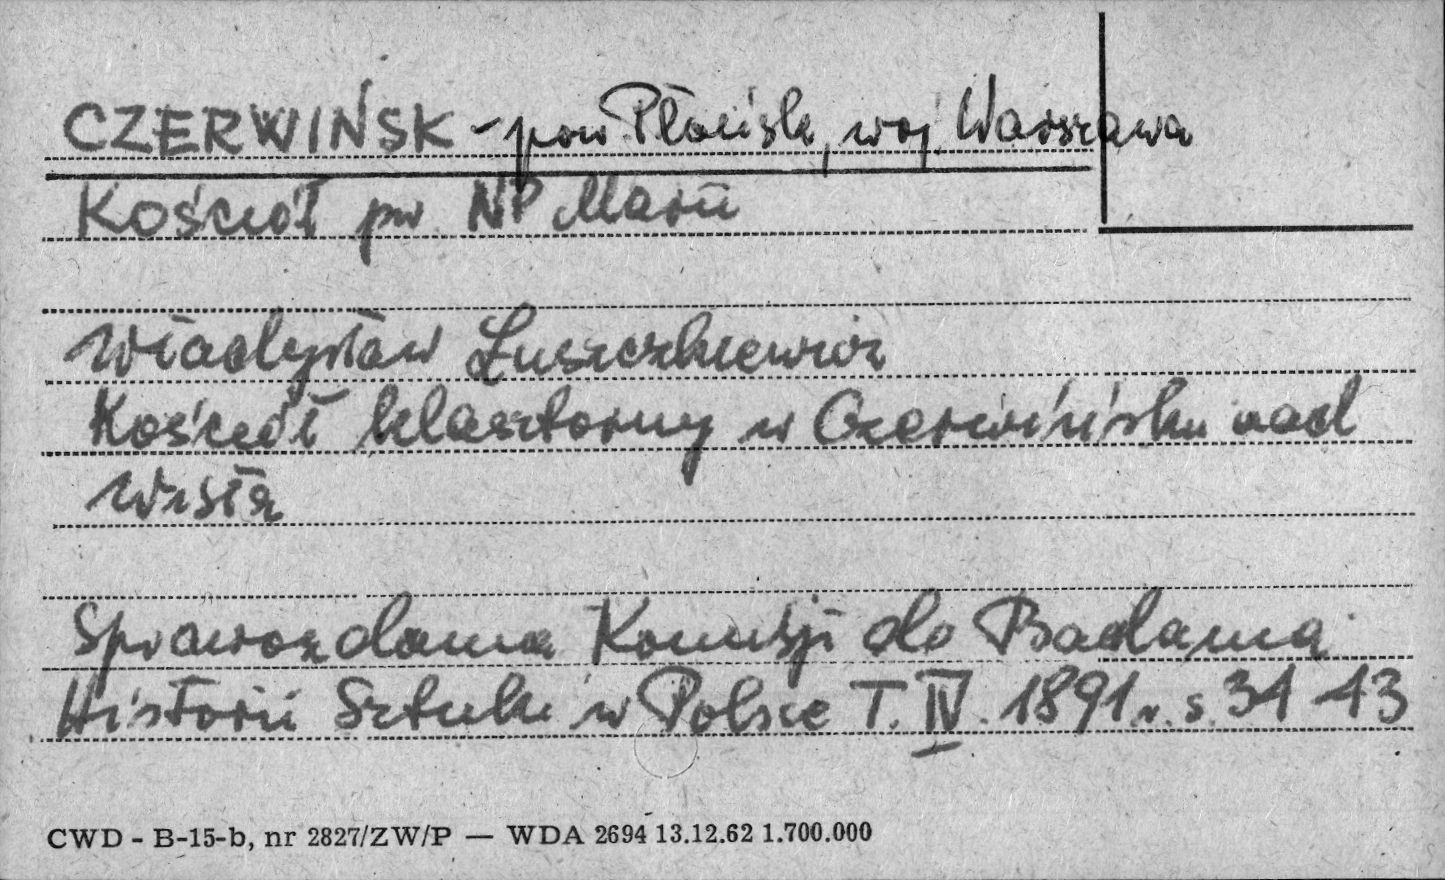 CZERWIŃSK - pow Płońsk, woj. Warszawa
Kościół pw NP Marii
Władysław Łuszczkiewicz
Kościół klasztorny w Czerwińsku nad
Wisłą
Sprawozdania Komisji do Badania
Historii Sztuki w Polsce T. IV. 1891 r. s. 31-43
CWD - B-15-b, nr 2827/ZW/P — WDA 2694 13.12.62 1.700.000